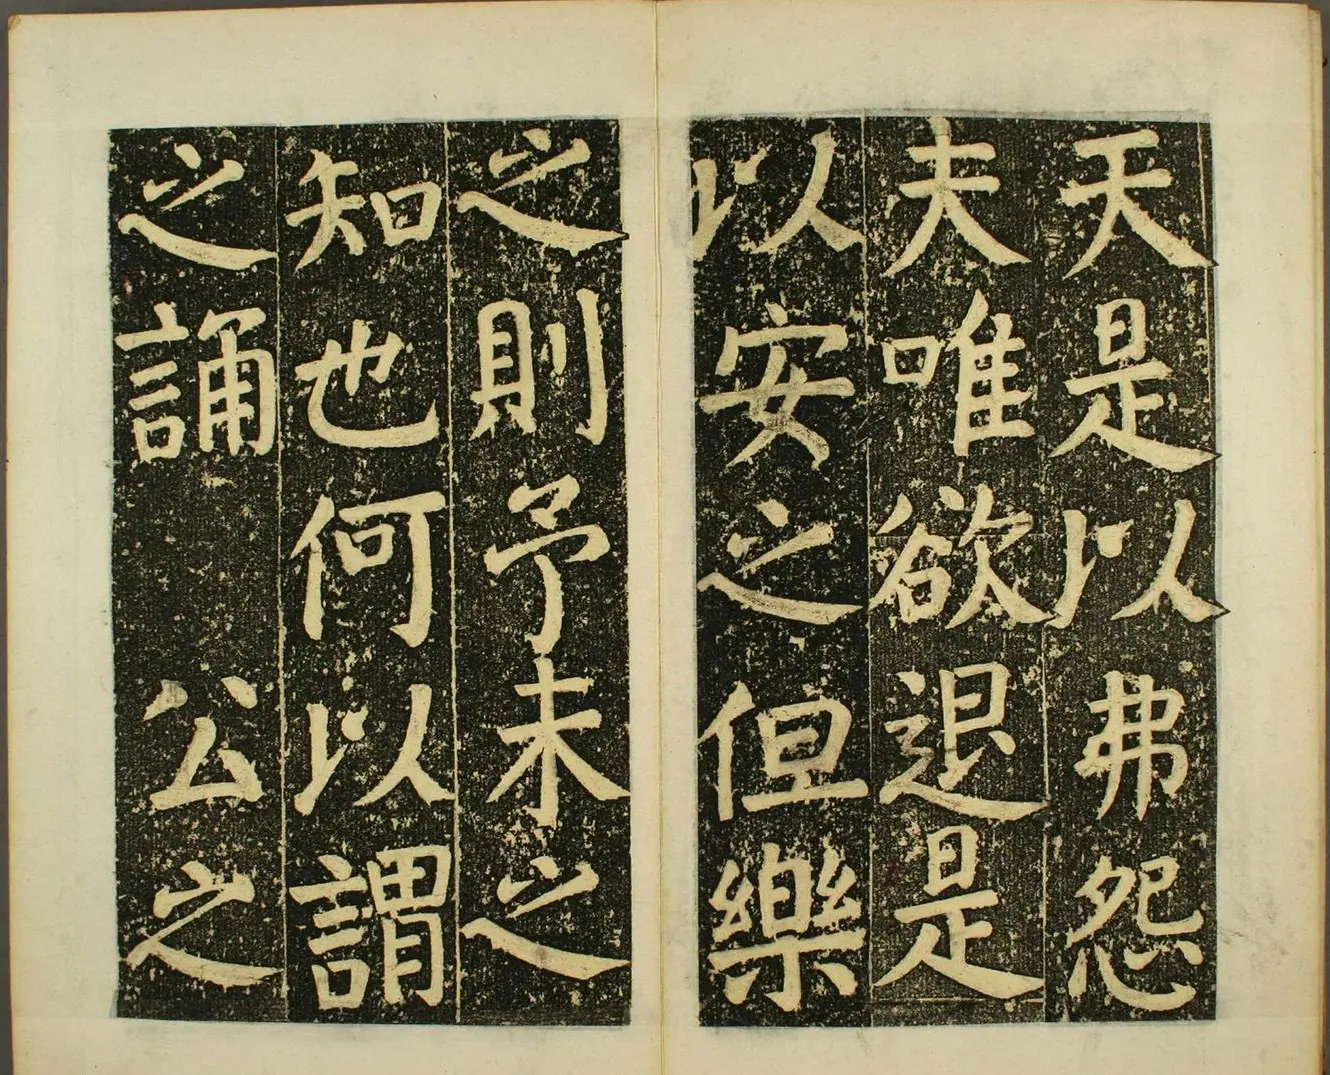 天是以弗怨
夫唯欲退是
以安之但樂
之則予未之
知也何以謂
之誦 公之